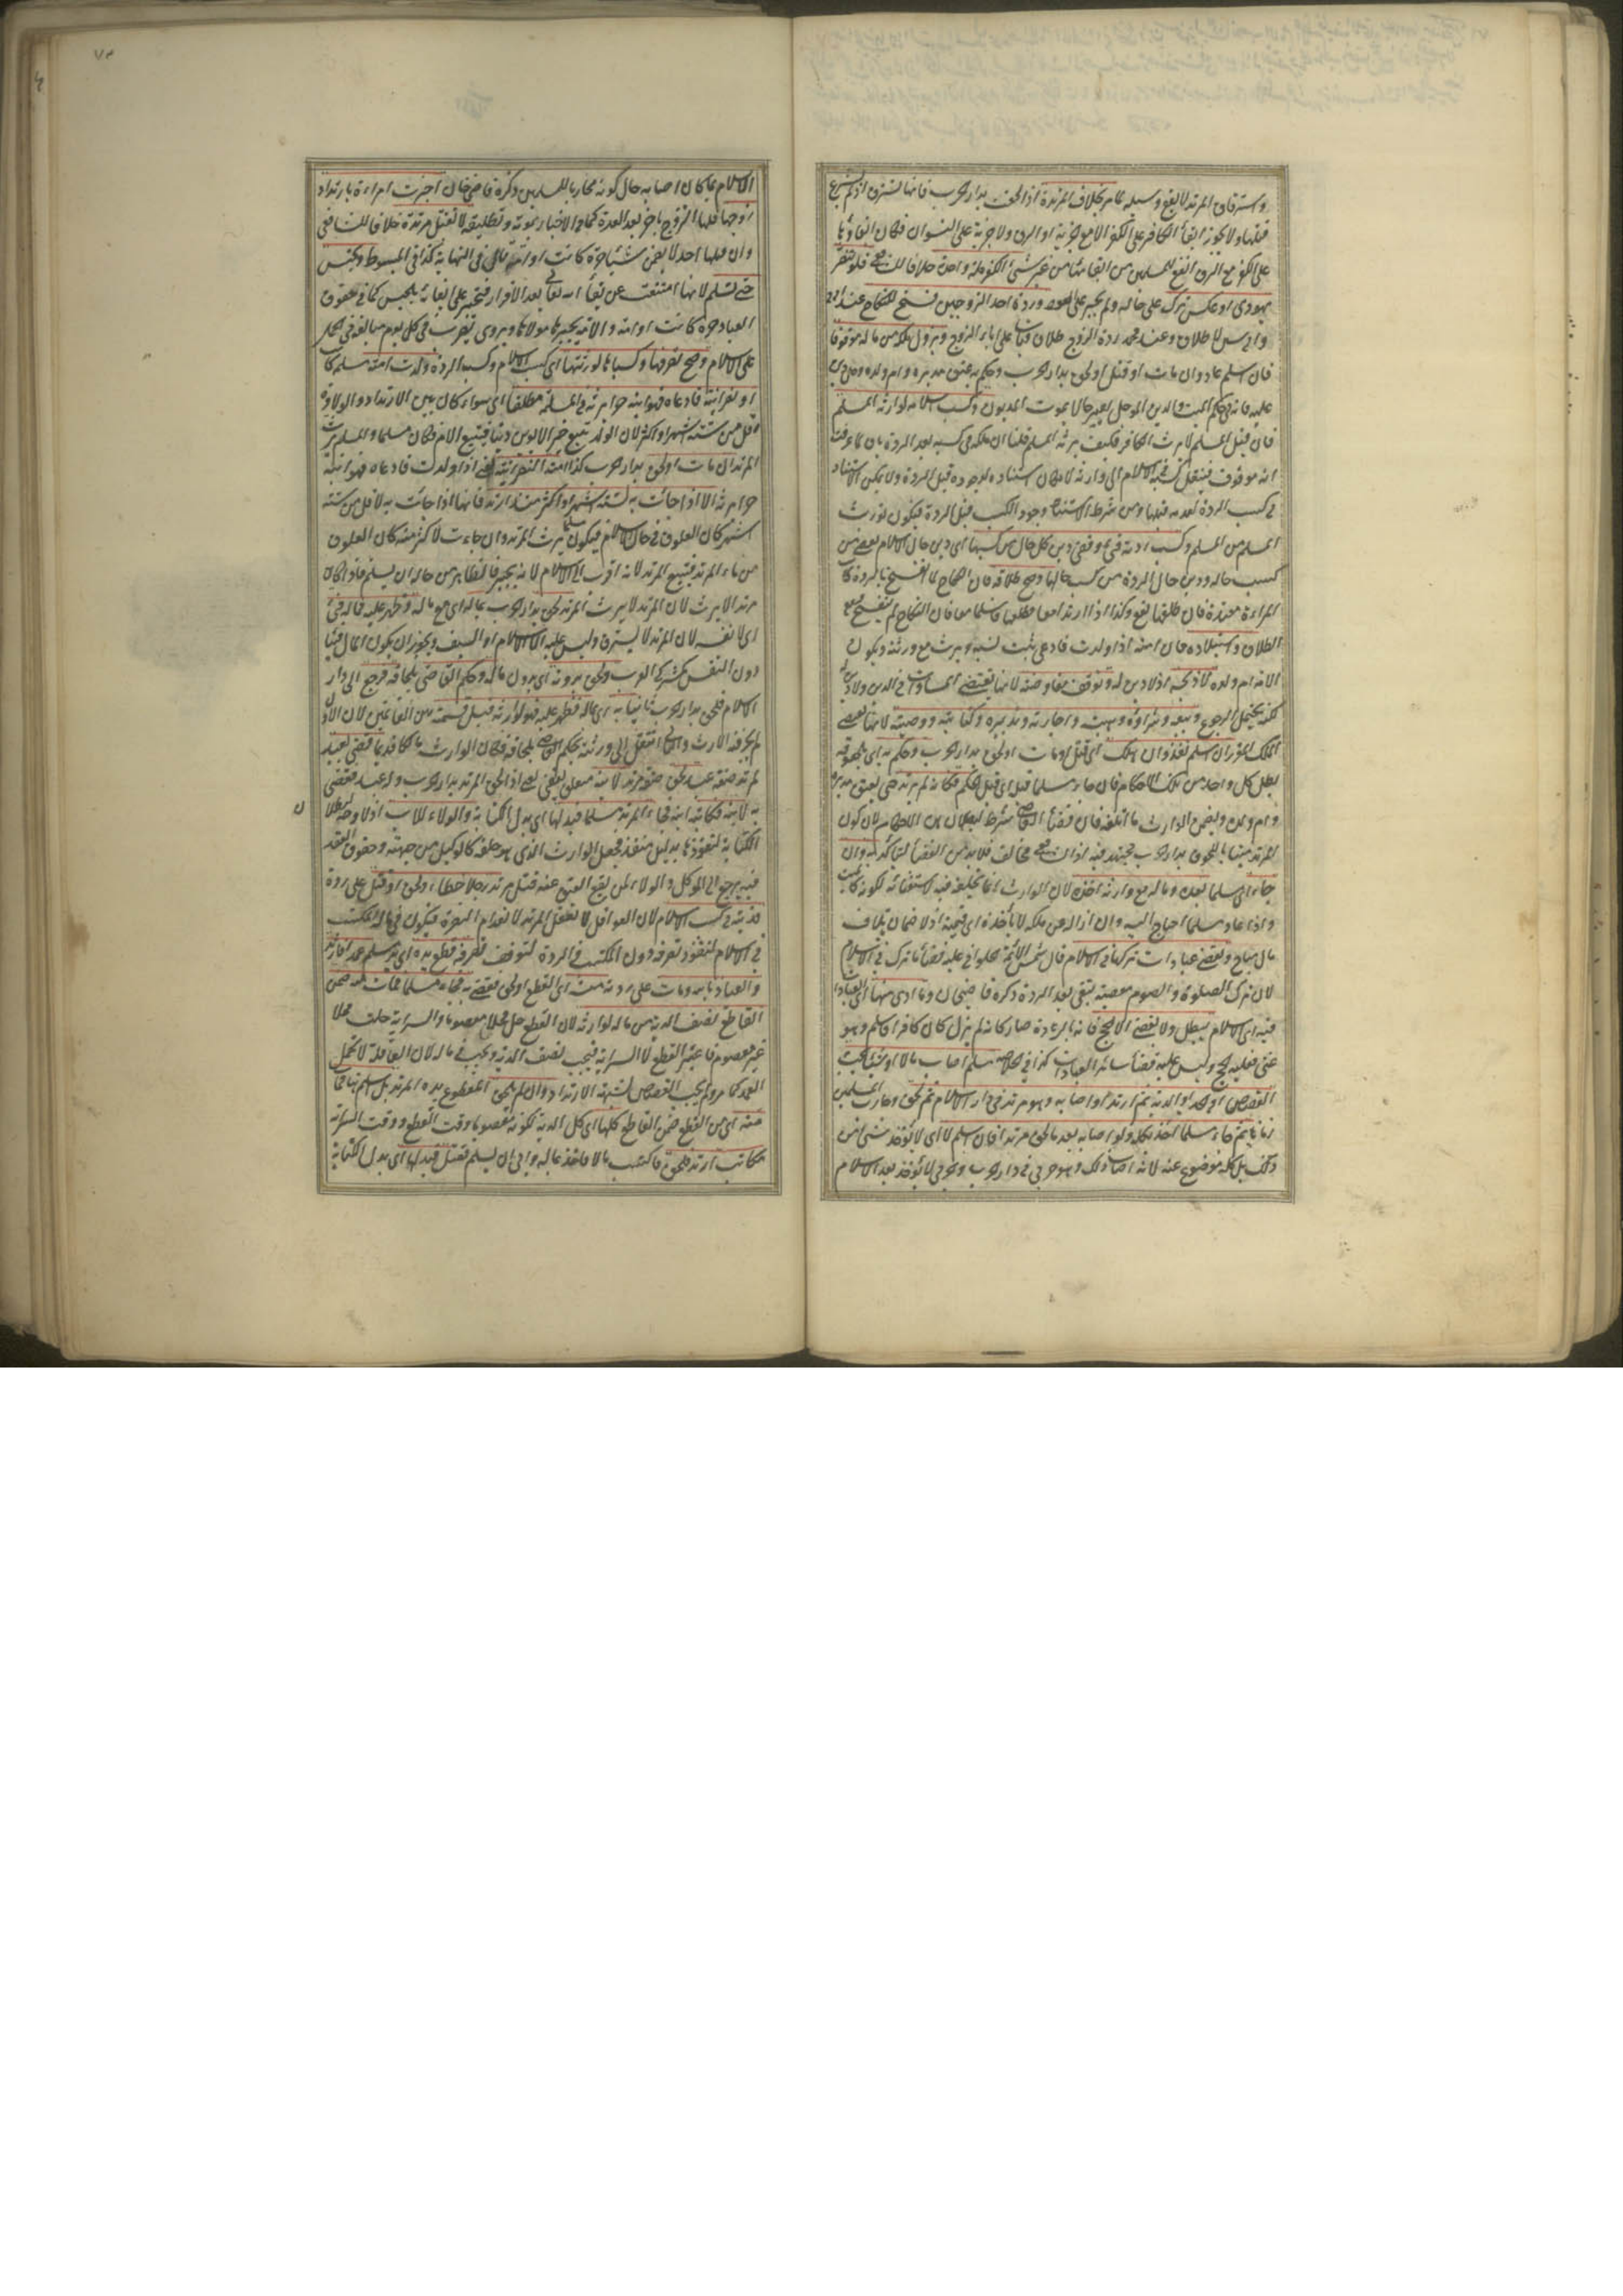 واسترقاق المرتد لا يقع وسيلة بخلاف المرتدة اذا لحقت بدار الحرب فانها تسترق اذ لم يشرع
قتلها ولا يجوز ابقاء الكافر على الكفر الا مع جزية او الرق ولا جزية على النسوان فكان ابقاؤها
على الكفر مع الرق انفع للمسلمين من ابقائها من غير شئ الكفر ملة واحدة خلافا للشافعي فلو تنصر
يهودى او عكس ترك على حاله ولم يجبر على العود وردة احد الزوجين فسخ للنكاح عند
وابى لا طلاق وعند محمد ردة الزوج طلاق على اباء الزوج ويزول ملكه من ماله موقوفا
فان اسلم عاد وان مات او قتل او لحق بدار الحرب وحكم به عتق مدبره وام ولده وحل دين
عليه فانه فى حكم الميت والدين المؤجل يصير حالا بموت المديون وكسب اسلامه لوارثه المسلم
فان قيل المسلم لا يرث الكافر فكيف يرثه المسلم قلنا ان ملكه فى كسبه بعد الردة
انه موقوف فينتقل كسبه فى الاسلام الى وارثه لامكان استناده لوجوده قبل الردة ولا يمكن الاستناد
فى كسب الردة لعدمه قبلها ومن شرط الاستناد وجود الكسب قبل الردة فيكون توريث
المسلم من المسلم وكسب ردته فئ وقضى دين كل حال من كسبها اى دين حال الاسلام يقضى من
كسب حاله ودين حال الردة من كسب حالها وصح طلاقه فان النكاح لما انفسخ بالردة
المراءة معتدة فان طلقها يقع وكذا اذا ارتدا معا فطلقها فاسلما معا فان النكاح لم ينفسخ فيقع
الطلاق واستيلاده فان امته اذا ولدت فادعى يثبت نسبه ويرث مع ورثته ويكون
الامة ام ولده لا ذبحه اذ لا دين له وتوقف مفاوضته لانها تقتضى المساواة فى الدين ولا دين له
لكنه يحتمل الرجوع وبيعه وشراؤه وهبته واجارته وتدبيره وكتابته ووصيته لانها تقتضى
الملك المقرر ان اسلم نفذ وان هلك اى قتل او مات او لحق بدار الحرب وحكم به اى بلحوقه
بطل كل واحد من تلك الاحكام فان جاء مسلما قبله اى قبل الحكم فكانه لم يرتد حتى لا يعتق مدبره
وام ولده ويضمن الوارث ما اتلفه فان قضاء القاضى شرط لبطلان هذه الاحكام لان كون
المرتد ميتا باللحوق بدار الحرب مجتهد فيه اذ الشافعي مخالف فلا بد من القضاء ليتأكد به وان
جاء اى مسلما بعده وماله مع وارثه اخذه لان الوارث انما يخلفه فيه لاستغنائه لكونه كالميت
واذا عاد مسلما احتاج اليه وان ازاله عن ملكه لا يأخذه اى قيمته اذ لا ضمان باتلاف
مال مباح ويقضى عبادات تركها فى الاسلام قال شمس الائمة الحلوانى عليه قضاء ما ترك فى الاسلام
لان ترك الصلوة والصوم معصية تبقى بعد الردة ذكره قاضيخان وما ادى منها اى العبادات
فيه اى الاسلام يبطل ولا يقضى الا الحج فانه بالردة صار كانه لم يزل كان كافرا فاسلم وهو
غنى فعليه الحج وليس عليه قضاء سائر العبادات كذا فى الخلاصة مسلم اصاب مالا او شيئا يجب
القصاص او الحد او الدية ثم ارتد او اصابه وهو مرتد فى دار الاسلام ثم لحق وحارب المسلمين
زمانا ثم جاء مسلما اخذ بكله ولو اصابه بعد ما لحق مرتدا فاسلم لا اى لا يؤخذ بشئ من
ذلك بل كله موضوع عنه لانه اصاب ذلك وهو حربى فى دار الحرب والحربى لا يؤخذ بعد الاسلام
الاسلام بما كان اصابه حال كونه محاربا للمسلمين ذكره قاضيخان اخبرت امراءة بارتداد
زوجها فلها التزوج بآخر بعد العدة كما فى الاخبار بموته وتطليقه لا تقتل مرتدة خلافا للشافعى
وان قتلها احد لا يضمن شيئا حرة كانت او امة كذا فى النهاية كذا فى المبسوط وتحبس
حتى تسلم لانها امتنعت عن ايفاء حق الله تعالى بعد الاقرار فتجبر على ايفائه بالحبس كما فى حقوق
العباد حرة كانت او امة والامة يجبرها مولاها ويروى تضرب فى كل يوم مبالغة فى الحمل
على الاسلام وصح تصرفها وكسباها لورثتها اى كسب الاسلام وكسب الردة ولدت امته مسلمة كانت
او نصرانية فادعاه فهو ابنه حرا يرثه فى المسلمة مطلقا اى سواء كان بين الارتداد والولادة
اقل من ستة اشهر او اكثر لان الولد يتبع خير الابوين دينا فيتبع الام فكان مسلما والمسلم يرث
المرتد ان مات او لحق بدار الحرب كذا امته النصرانية يعنى اذا ولدت فادعاه فهو ابنه
حرا يرثه الا اذا جاءت به لستة اشهر او اكثر منذ ارتد فانها اذا جاءت به لاقل من ستة
اشهر كان العلوق فى حال الاسلام فيكون مسلما يرث المرتد وان جاءت لاكثر منه كان العلوق
من ماء المرتد فيتبع المرتد لانه اقرب الى الاسلام لانه يجبر فالظاهر من حاله ان يسلم فاذا كان
مرتدا لا يرث لان المرتد لا يرث المرتد لحق بدار الحرب بماله اى مع ماله وظهر عليه فماله فئ
اى لا نفسه لان المرتد لا يسترق وليس عليه الا الاسلام او السيف ويجوز ان يكون المال فيئا
دون النفس كمشركى العرب ولحق بدونه اى بدون ماله وحكم القاضى بلحاقه فرجع الى دار
الاسلام فلحق بدار الحرب ثانيا به اى بماله فظهر عليه فهو لوارثه قبل قسمته بين الغانمين لان الاول
لم يجر فيه الارث والثانى انتقل الى ورثته بحكم القاضى بلحاقه فكان الوارث مالكا قديما قضى بعبد
مرتد صفة عبد لحق صفة مرتد لابنه متعلق بقضى يعنى اذا لحق المرتد بدار الحرب وله عبد فقضى
به لابنه فكاتبه ابنه فجاء المرتد مسلما فبدلها اى بدل الكتابة والولاء للاب اذ لا وجه لبطلان
الكتابة لنفوذها بدليل منفذ فجعل الوارث الذى هو خلفه كالوكيل من جهته وحقوق العقد
فيه يرجع الى الموكل والولاء لمن يقع العتق عنه قتل مرتد رجلا خطاء ولحق او قتل على ردة
فديته فى كسب الاسلام لان العواقل لا تعقل المرتد لانعدام النصرة فيكون فى ماله المكتسب
فى الاسلام لنفوذ تصرفه دون المكتسب فى الردة لتوقف تصرفه قطع يده اى يد مسلم عمدا فارتد
والعياذ بالله ومات على ردته منه اى القطع او لحق فقضى به فجاء مسلما فمات منه ضمن
القاطع نصف الدية من ماله لوارثه لان القطع حل محلا معصوما والسراية حلت محلا
غير معصوم فاعتبر القطع لا السراية فيجب نصف الدية ويجب فى ماله لان العاقلة لا تحمل
العمد كما مر ولم يجب القصاص لشبهة الارتداد وان لم يلحق المقطوع يده المرتد بل اسلم فمات
منه اى من القطع ضمن القاطع كلها اى كل الدية لكونه معصوما وقت القطع ووقت السراية
مكاتب ارتد فلحق فاكتسب مالا فاخذ بماله وابى ان يسلم فقتل فبدلها اى بدل الكتابة